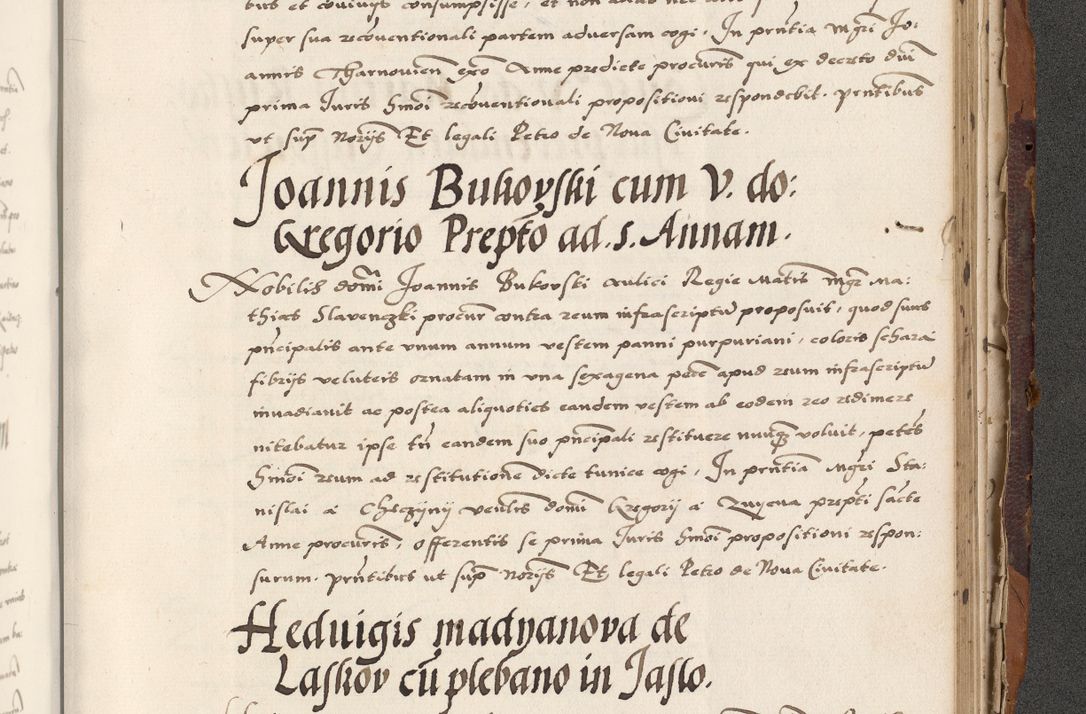 bus et convivijs consumpsisse, et non alias nec
super sua recoventionali partem adversam cogi. In prntia Mgri Jo:
annis Tharnovien exo Anne predicte procuris qui ex decreto dni
prima Iuris Hmoi recoventionali propositioni respondebit. prntibus
ut sup Norijs Et legali Petro de Nova Civitate.
Joannis Bukovski cum V. do:
Gregorio Prepto ad. s. Annam.
Nobilis domi Joannis Bukovski Aulici Regie Matis Mgr Ma:
thias Slavenczki procur contra reum infrascriptu proposuit, quod suus
pncipalis ante unum annum vestem panni purpuriani, coloris schara
fibrijs veluteis ornatam in una sexagena pece apud reum infrascriptu
invadiavit ac postea aliquoties eandem vestem ab eodem reo redimere
nitebatur ipse tn eandem suo pncipali restituere nunq voluit, petes
Hmoi reum ad restitutione dicte tunice cogi, In prntia Mgri Sta:
nislai a Checzyny venlis domi Gregorij a prepti sacte
Anne procuris, offerentis se prima Iuris Hmoi propositioni respon:
surum. prntibus ut sup Norijs Et legali Petro de Nova Civitate.
Heduigis madyanova de
Laskov cu plebano in Jaslo.